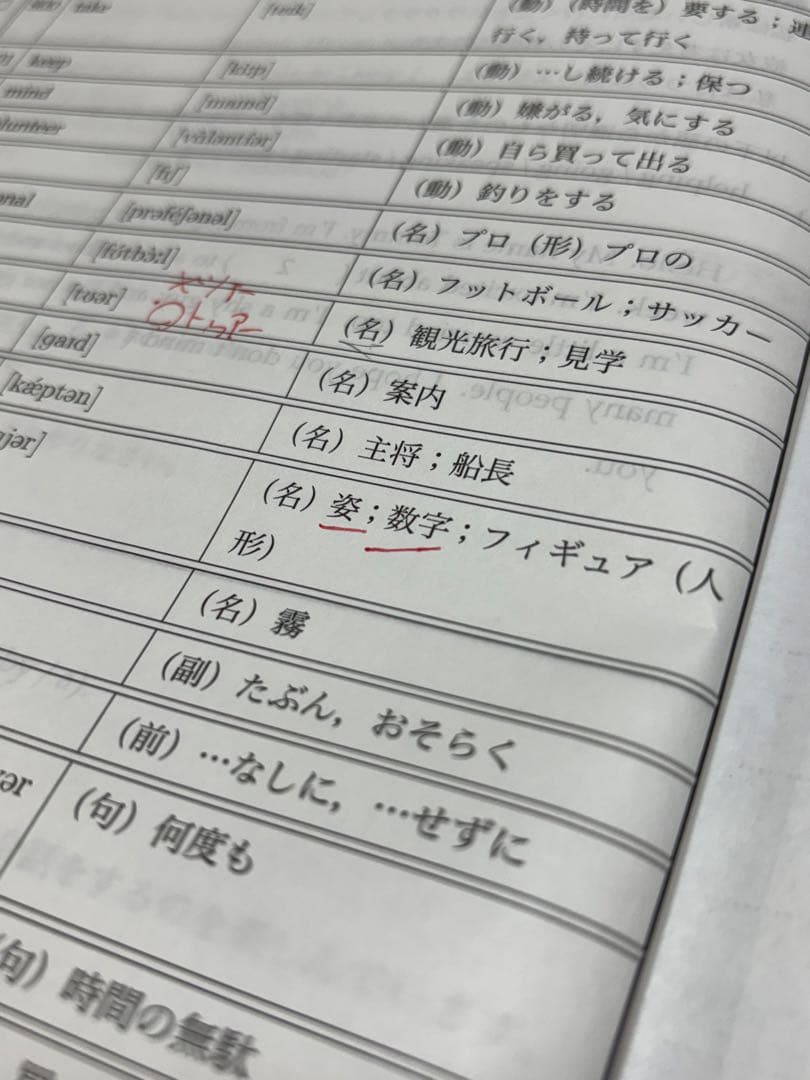 take [teik] (動)(時間を)要する；連
行く，持って行く
keep [kiːp] (動)…し続ける；保つ
mind [maɪnd] (動)嫌がる，気にする
[vὰləntíər] (動)自ら買って出る
[fɪʃ] (動)釣りをする
[prəféʃənəl] (名)プロ (形)プロの
[fʊ́tbɔ̀ːl] (名)フットボール；サッカー
[tʊər] (名)観光旅行；見学
×ツアー
○トゥアー
[gaɪd] (名)案内
[kǽptən] (名)主将；船長
jər] (名)姿；数字；フィギュア（人
形）
(名)霧
(副)たぶん，おそらく
(前)…なしに，…せずに
(句)何度も
(句)時間の無駄